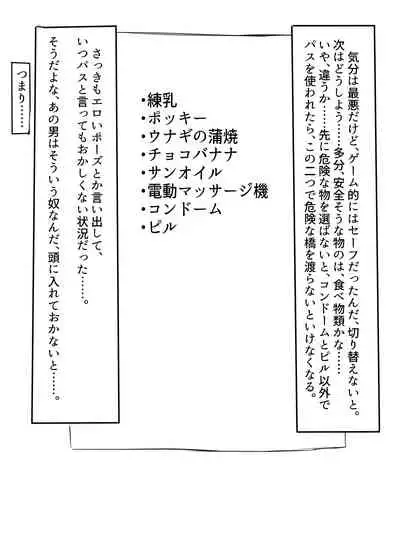 気分は最悪だけど、ゲーム的にはセーフだったんだ、切り替えないと。
次はどうしよう……多分、安全そうな物のは、食べ物類かな……
いや、違うか……先に危険な物を選ばないと、コンドームとピル以外で
パスを使われたら、この二つで危険な橋を渡らないといけなくなる。
・練乳
・ポッキー
・ウナギの蒲焼
・チョコバナナ
・サンオイル
・電動マッサージ機
・コンドーム
・ピル
さっきもエロいポーズとか言い出して、
いつパスと言ってもおかしくない状況だった……。
そうだよな、あの男はそういう奴なんだ、頭に入れておかないと……。
つまり……